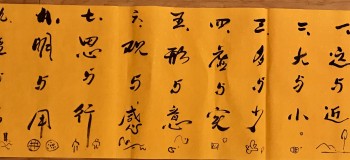 一、远与近
二、大与小。
三、多与少
四、虚与实
五、形与意
六、观与感
七、思与行
八、明与用